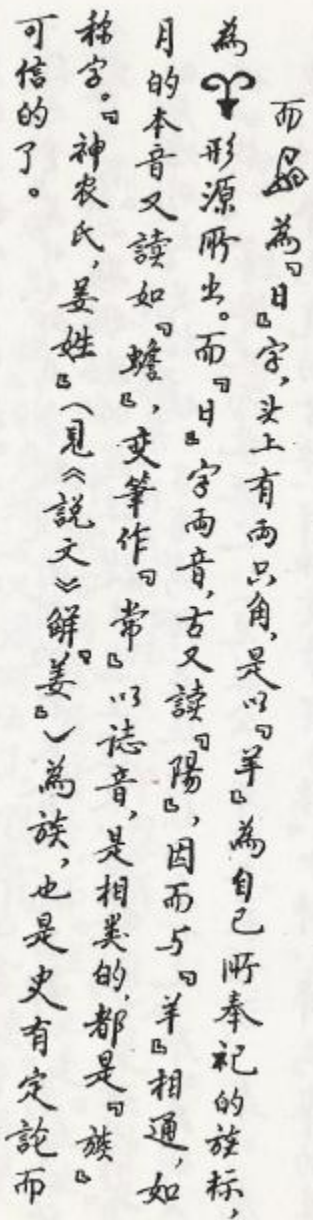 而為『日』字，头上有两只角，是以『羊』為自己所奉祀的族标，
為形源所出。而『日』字两音，古又讀『陽』，因而与『羊』相通，如
月的本音又讀如『蟾』，变筆作『常』以誌音，是相类的，都是『族』
称字。『神农氏，姜姓』（見《説文》解『姜』）為族，也是史有定論而
可信的了。